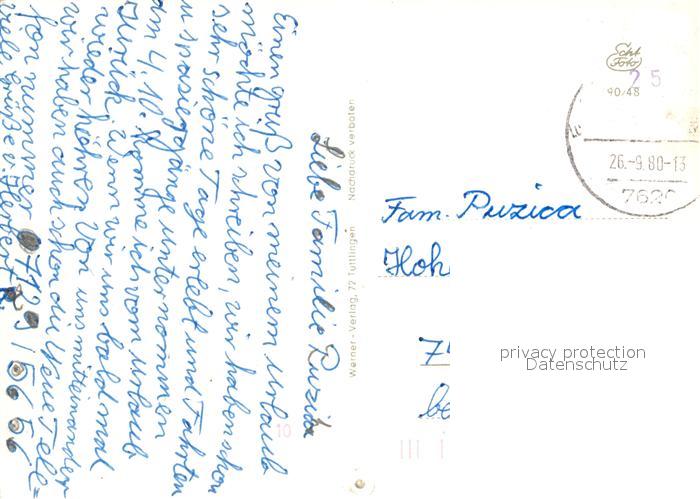 Liebe Familie Puzica
Einen gruß von meinem Urlaub
möchte ich schreiben, wir haben schon
sehr schöne Tage erlebt und Fahrten
u spaziergänge unternommen
am 4.10. komme ich vom Urlaub
zurück. Wenn wir uns bald mal
wieder hören von uns miteinander
wir haben auch schon die Neue Tele=
fon nummer 07129 / 5656
viele grüße v. Herbert
Werner-Verlag, 72 Tuttlingen Nachdruck verboten
Echt
Foto
90/48
25
26.-9.80-13
762
Fam. Puzica
Hoh
7
be
privacy protection
Datenschutz
10